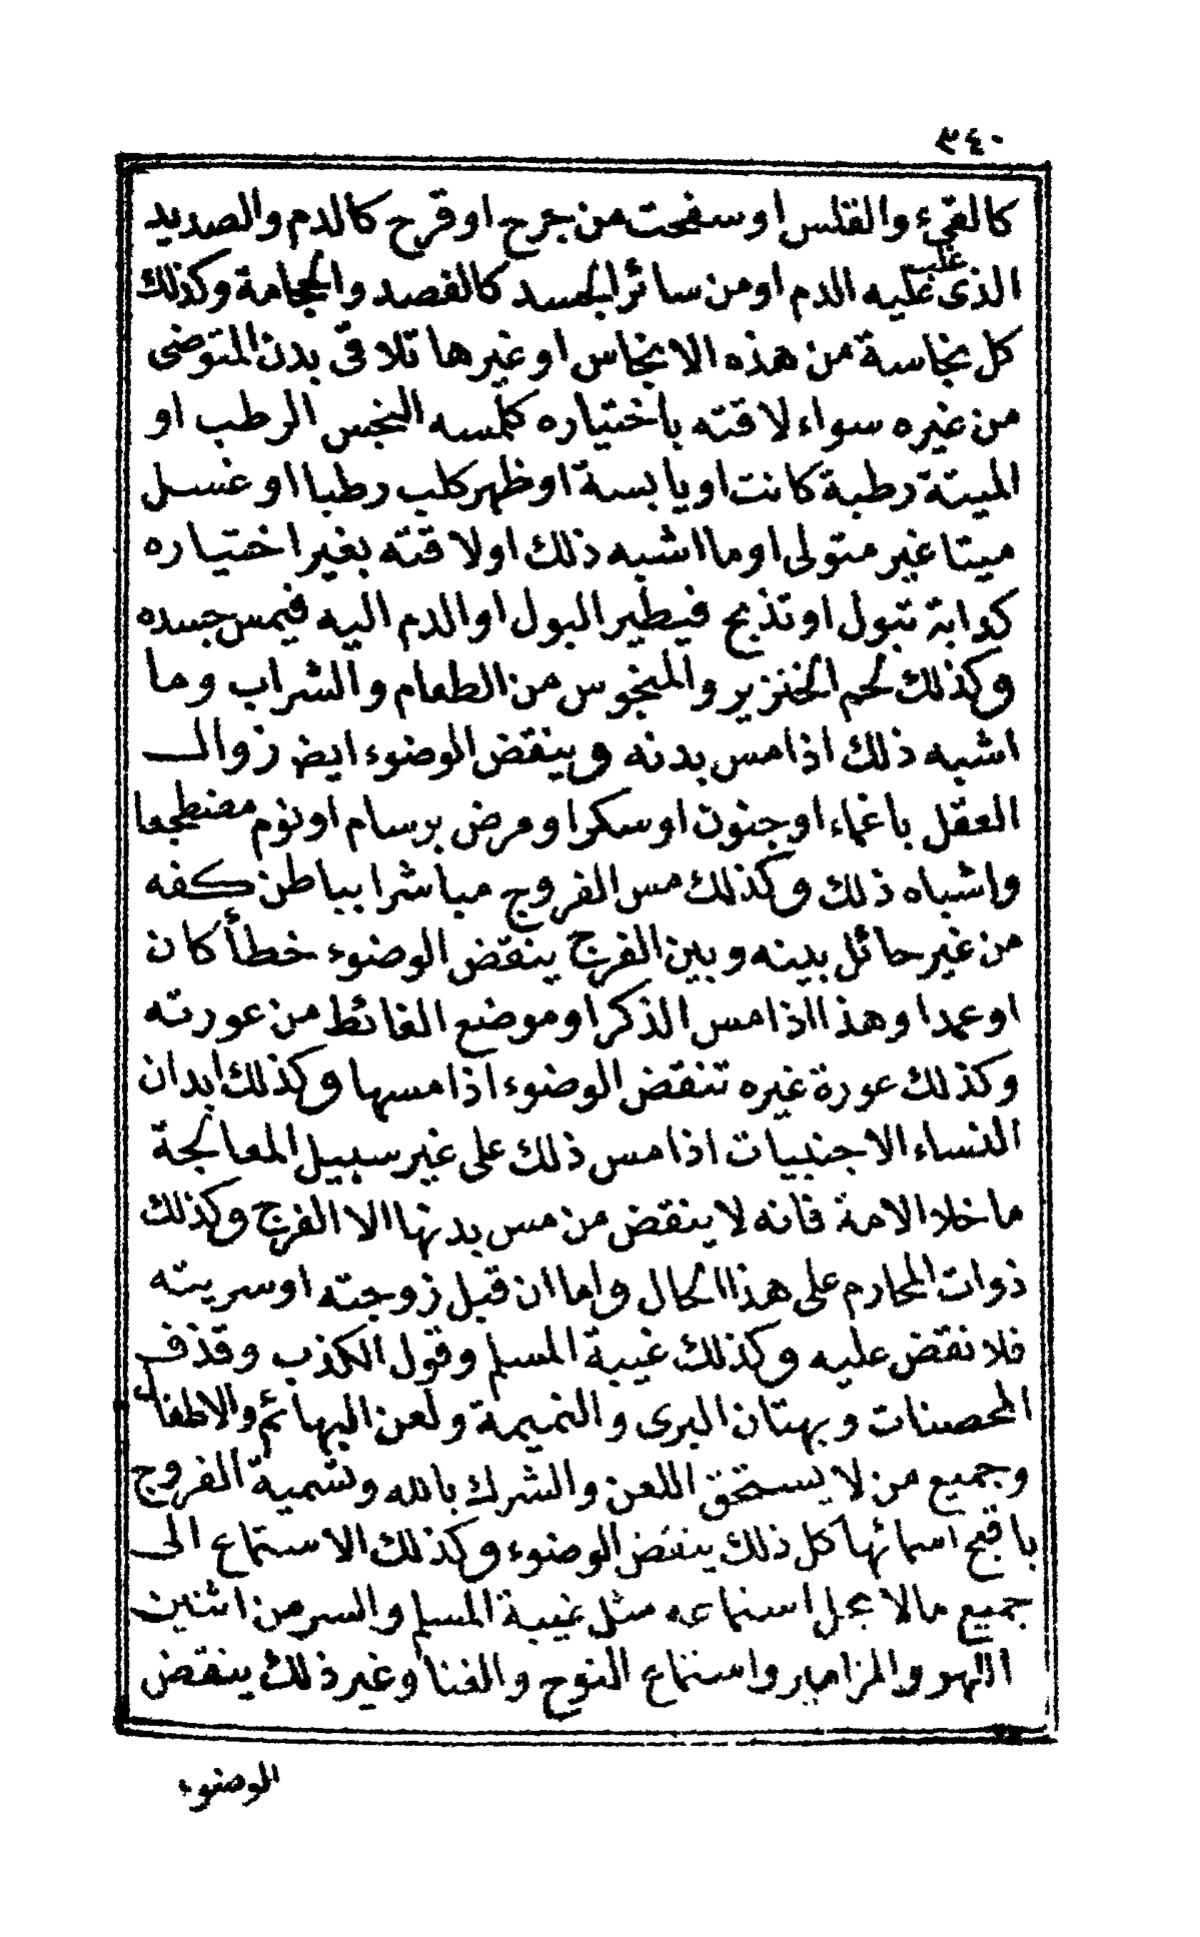 ٣٤٠
كالقيء والقلس او سفحت من جرح او قرح كالدم والصديد
غلب
الذى عليه الدم او من سائر الجسد كالفصد والحجامة وكذلك
كل نجاسة من هذه الانجاس او غيرها تلاقى بدن المتوضى
من غيره سواء لاقته باختياره كلمسه النجس الرطب او
الميتة رطبة كانت او يابسة او ظهر كلب رطبا او غسل
ميتا غير متولى او ما اشبه ذلك او لاقته بغير اختياره
كدابة تبول او تذبح فيطير البول او الدم اليه فيمس جسده
وكذلك لحم الخنزير والمنجوس من الطعام والشراب وما
اشبه ذلك اذا مس بدنه وينقض الوضوء ايض زوال
العقل باغماء او جنون او سكر او مرض برسام او نوم مضطجعا
واشباه ذلك وكذلك مس الفروج مباشرا بباطن كفه
من غير حائل بينه وبين الفرج ينقض الوضوء خطأ كان
او عمدا وهذا اذا مس الذكر او موضع الغائط من عورته
وكذلك عورة غيره تنقض الوضوء اذا مسها وكذلك ابدان
النساء الاجنبيات اذا مس ذلك على غير سبيل المعالجة
ما خلا الامة فانه لا ينقض من مس بدنها الا الفرج وكذلك
ذوات المحارم على هذا الحال واما ان قبل زوجته او سريته
فلا نقض عليه وكذلك غيبة المسلم وقول الكذب وقذف
المحصنات وبهتان البرى والنميمة ولعن البهائم والاطفال
وجميع من لا يستحق اللعن والشرك بالله وتسمية الفروج
باقبح اسمائها كل ذلك ينقض الوضوء وكذلك الاستماع الى
جميع ما لا يحل استماعه مثل غيبة المسلم والسر من اثنين
اللهو والمزامير واستماع النوح والغنا وغير ذلك ينقض
الوضوء